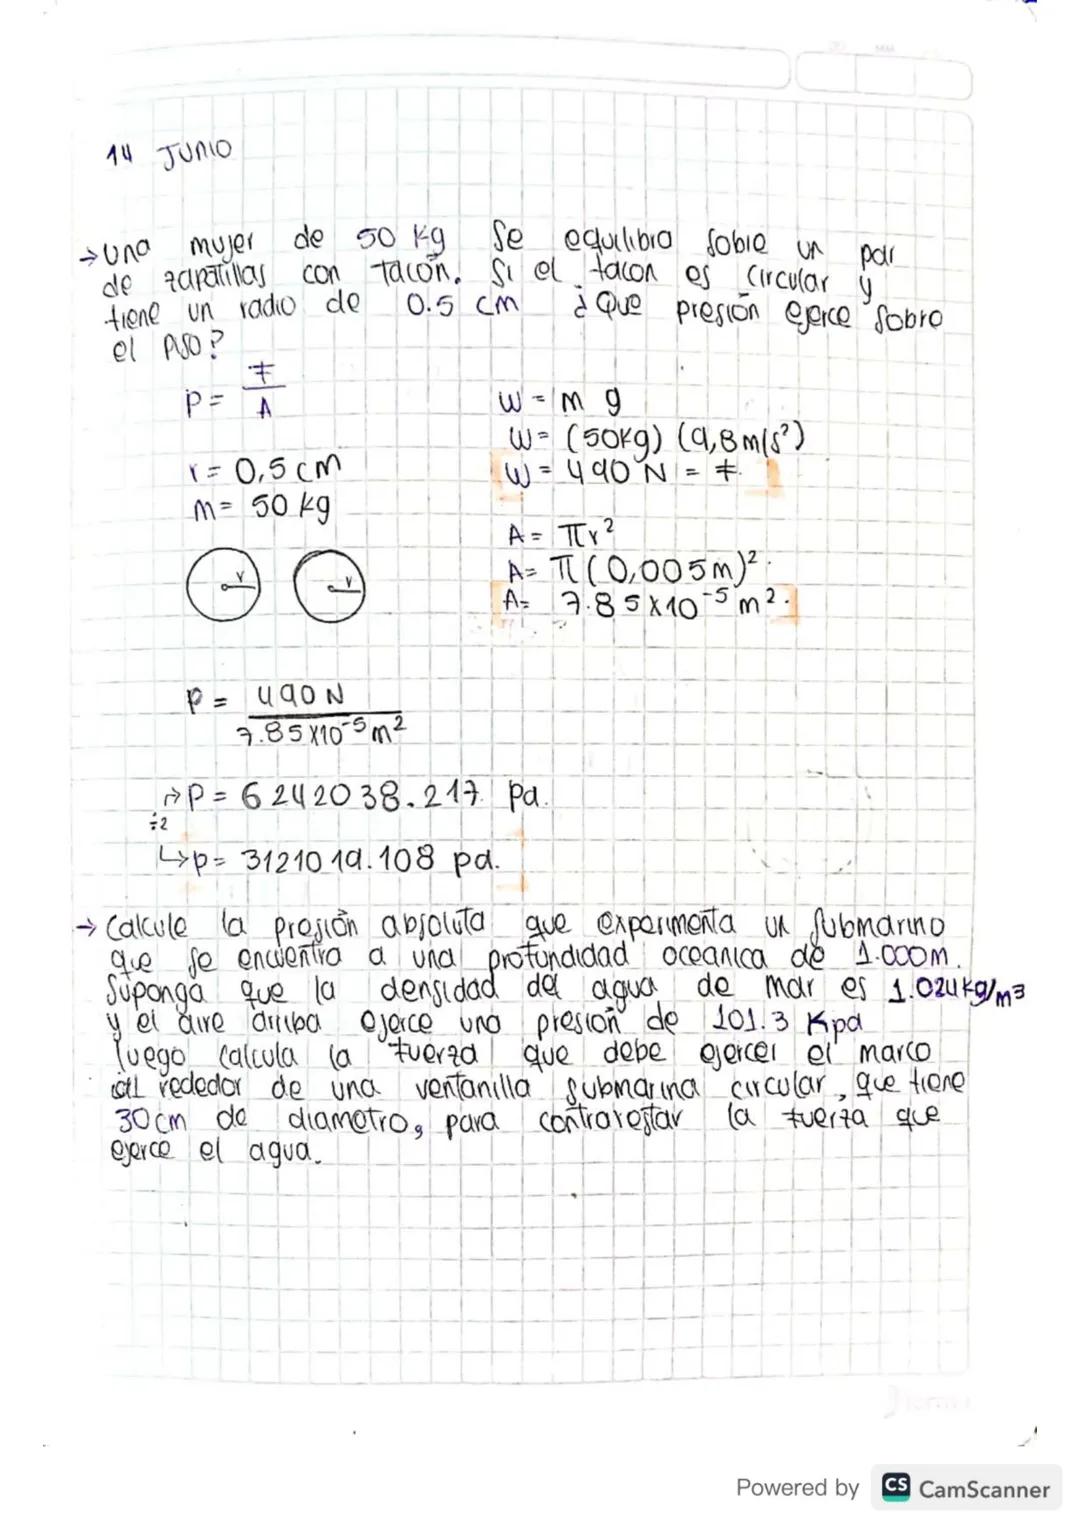 14 JUNIO
→ Una mujer de 50 kg Se equilibra sobre un par
de zapatillas con Tacón. Si el tacon es circular y
tiene un radio de 0.5 cm ¿Que presión ejerce sobre
el piso?
P= F/A
W = m g
W= (50kg) (9,8 m/s²)
r = 0,5 cm
W = 490 N = F.
m= 50 kg
A = πr²
A= π (0,005m)².
A= 7.85x10⁻⁵ m².
r r
P = 490 N / 7.85x10⁻⁵ m²
→ P = 6242038.217 pa.
÷2
↳ p= 3121019.108 pa.
→ Calcule la presión absoluta que experimenta un submarino
que se encuentra a una profundidad oceanica de 1.000m.
Suponga que la densidad del agua de mar es 1.024kg/m3
y el aire arriba ejerce una presión de 101.3 Kpa
luego calcula la fuerza que debe ejercer el marco
al rededor de una ventanilla submarina circular, que tiene
30cm de diametro, para contrarestar la fuerza que
ejerce el agua.
Powered by CS CamScanner